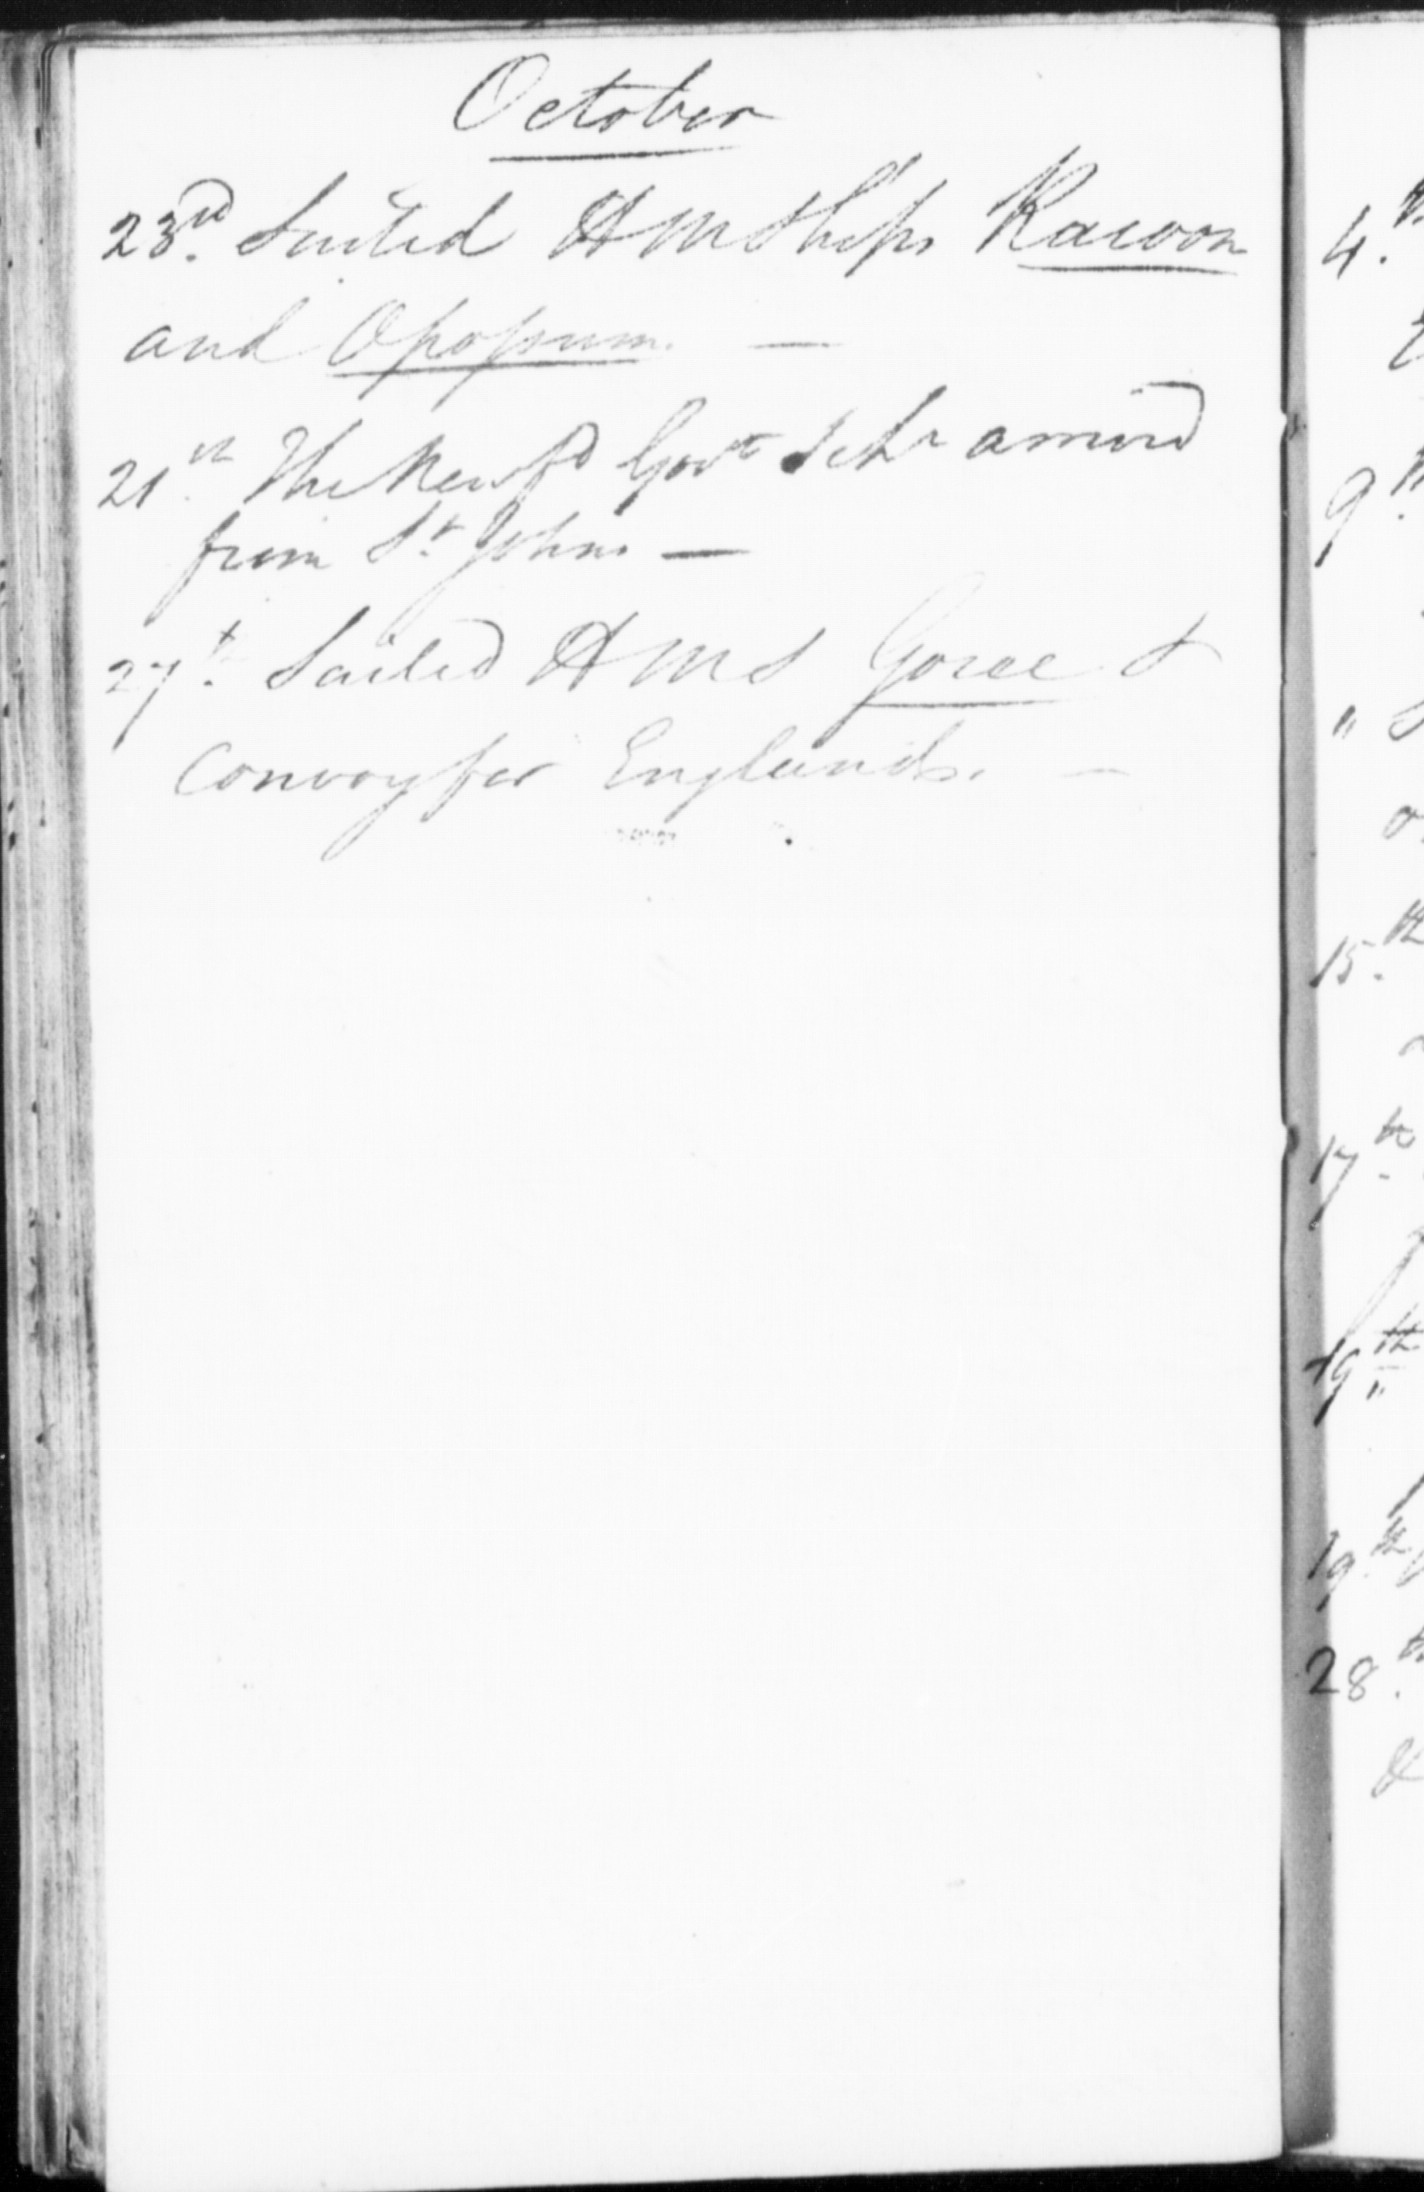 October
23rd. Sailed HM Ships Racoon
and Opossum. —
21st. The Newfd Govt Schr arrived
from St. Johns —
27t. Sailed HMS Goree &
Convoy for England. —
4.th
9.th
"
15.th
17.th
19.th
19.th
28.th
&